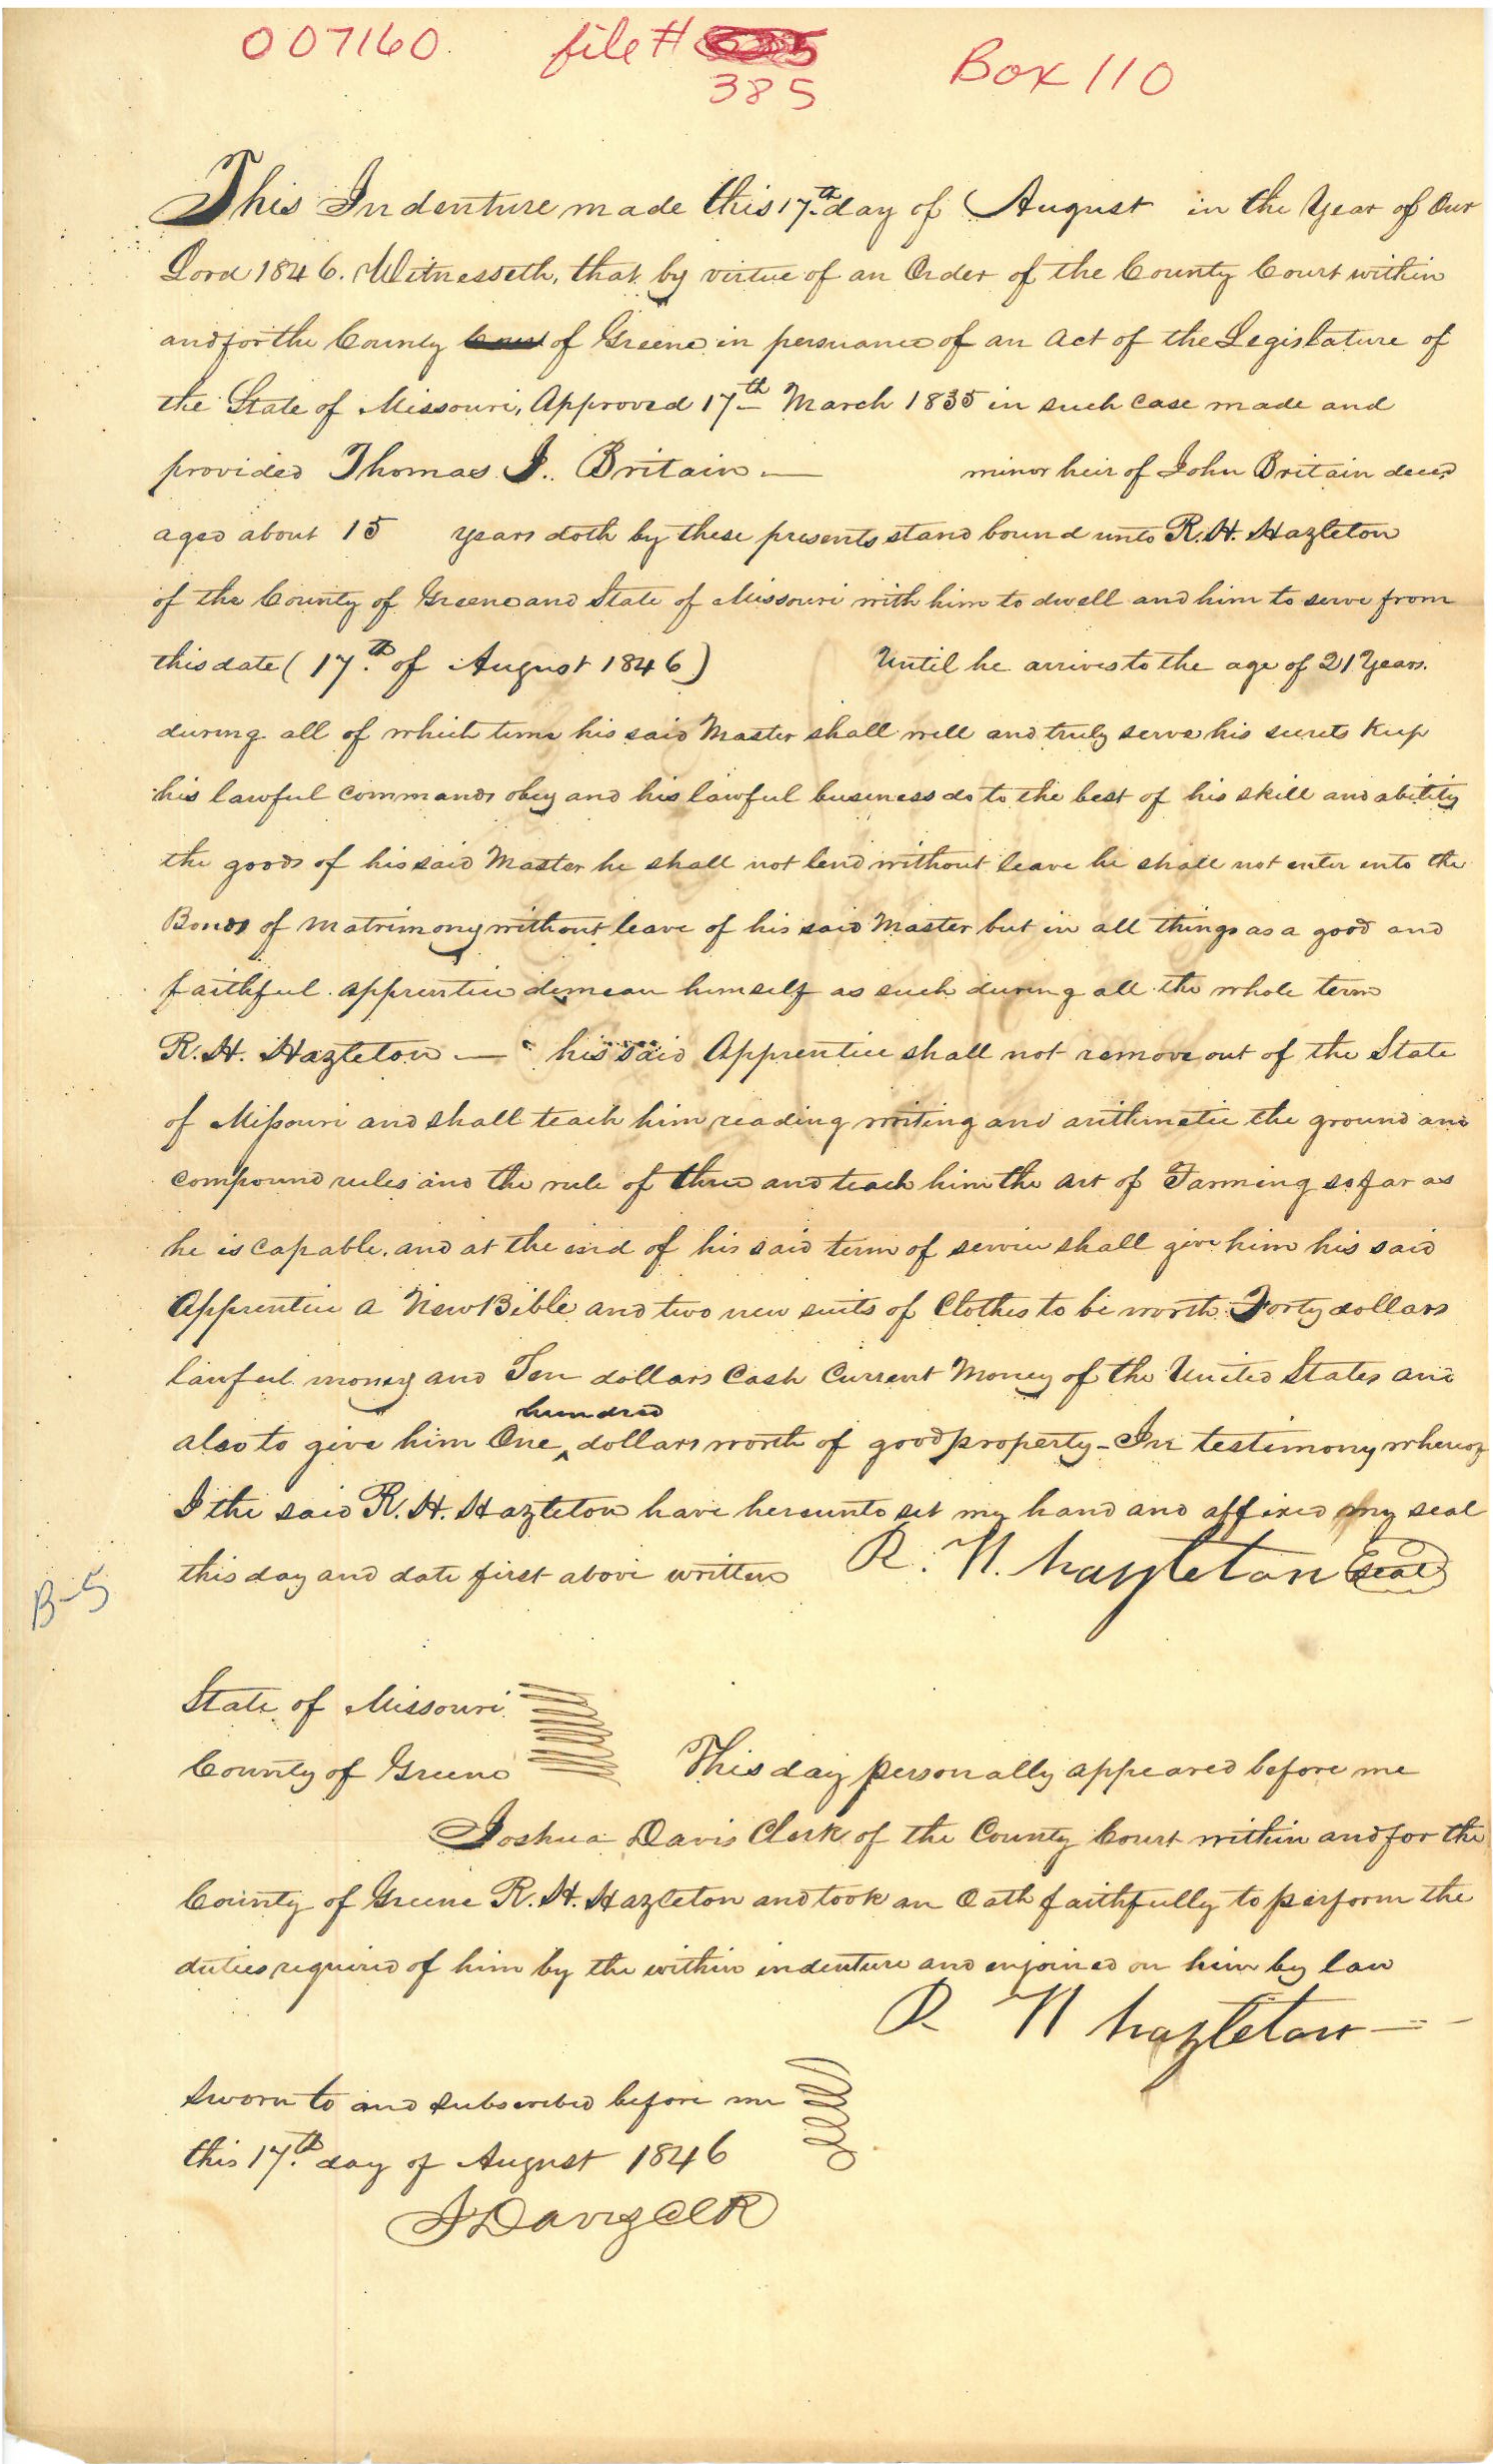 007160 file # 385 Box 110
This Indenture made this 17th day of August in the Year of Our
Lord 1846. Witnesseth, that by virtue of an Order of the County Court within
and for the County of Greene in persuance of an Act of the Legislature of
the State of Missouri, Approved 17th March 1835 in such case made and
provided Thomas J. Britain — minor heir of John Britain decd
aged about 15 years doth by these presents stand bound unto R. H. Hazleton
of the County of Greene and State of Missouri with him to dwell and him to serve from
this date ( 17th of August 1846 ) Until he arrives to the age of 21 Years.
during all of which time his said Master shall well and truly serve his secrets keep
his lawful commands obey and his lawful business do to the best of his skill and ability
the goods of his said Master he shall not lend without leave he shall not enter into the
Bonds of matrimony without leave of his said Master but in all things as a good and
faithful apprentice demean himself as such during all the whole term
R. H. Hazleton — his said Apprentice shall not remove out of the State
of Missouri and shall teach him reading writing and arithmetic the ground and
compound rules and the rule of three and teach him the art of Farming so far as
he is capable. and at the end of his said term of service shall give him his said
Apprentice a New Bible and two new suits of Clothes to be worth Forty dollars
lawful money and Ten dollars Cash Current Money of the United States and
also to give him One hundred dollars worth of good property - In testimony whereof
I the said R. H. Hazleton have hereunto set my hand and affixed my seal
this day and date first above written R. H. hazleton Seal
B-5
State of Missouri
County of Greene This day personally appeared before me
Joshua Davis Clerk of the County Court within and for the
County of Greene R. H. Hazleton and took an Oath faithfully to perform the
duties required of him by the within indenture and enjoined on him by law
R H hazleton
Sworn to and subscribed before me
this 17th day of August 1846
J Davis Clk